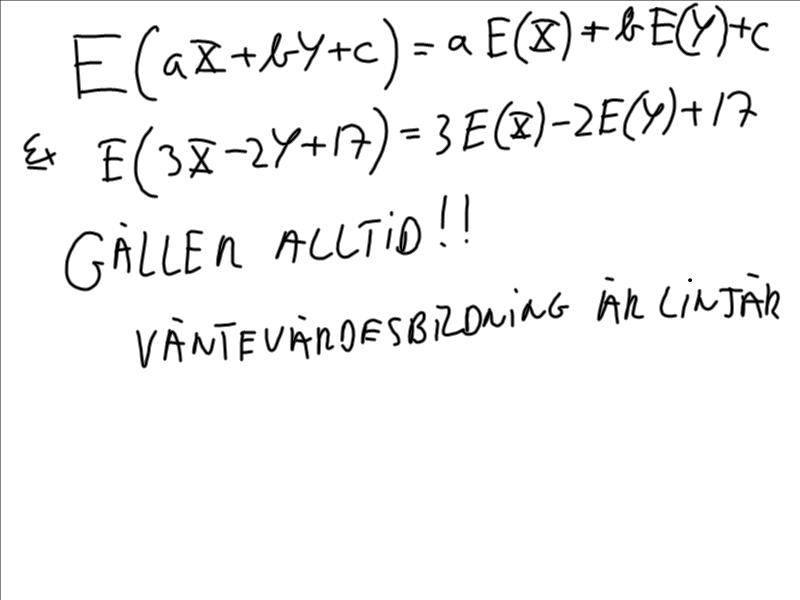 E(aX+bY+c) = a E(X) + b E(Y) + c
Ex E(3X-2Y+17) = 3 E(X) - 2 E(Y) + 17
GÄLLER ALLTID!!
VÄNTEVÄRDESBILDNING ÄR LINJÄR